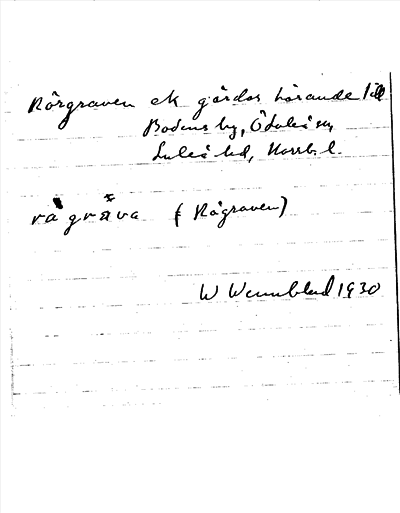 Rörgraven ek gårdar hörande till
Bodens by, Öfv.luleå sn,
Luleå hd, Norrb. l.
rågrăva (Rågraven)
W Wennblad 1930